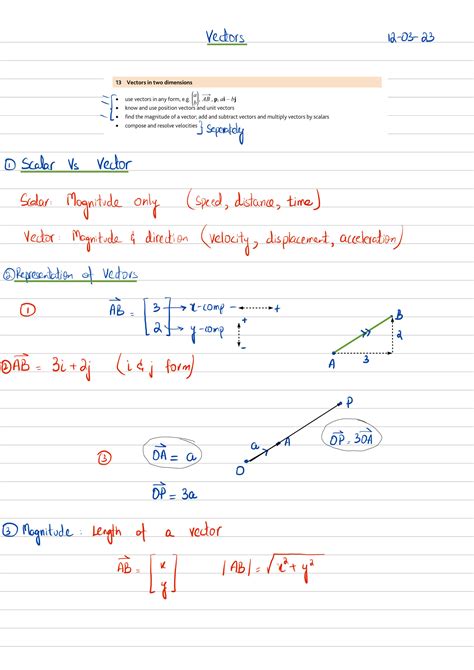 Vectors 12-03-23
13 Vectors in two dimensions
• use vectors in any form, e.g. (a b), AB, p, ai – bj
• know and use position vectors and unit vectors
• find the magnitude of a vector; add and subtract vectors and multiply vectors by scalars
• compose and resolve velocities ] Separately
① Scalar Vs Vector
Scalar: Magnitude only (speed, distance, time)
Vector: Magnitude & direction (velocity, displacement, acceleration)
② Representation of Vectors
① AB = [3 → x-comp - ↔ +
2] → y-comp + ↕ -
A B 3 2
② AB = 3i + 2j (i & j form)
③ OA = a
OP = 3a
O a A P
OP = 3OA
③ Magnitude: Length of a vector
AB = [x y] |AB| = √x² + y²